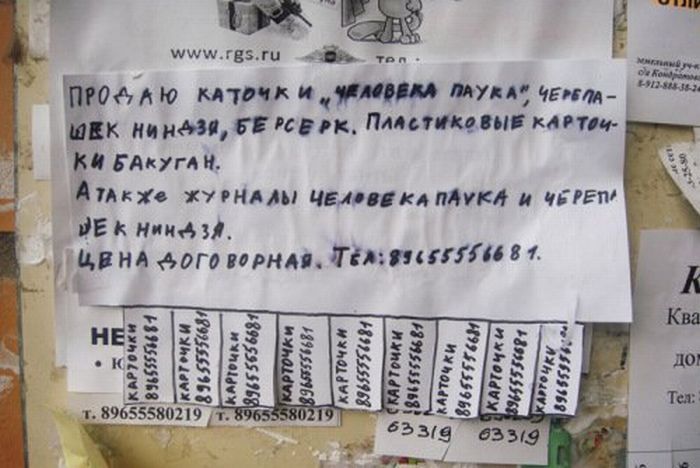 www.rgs.ru
тел.:
ПРОДАЮ КАТОЧКИ „ЧЕЛОВЕКА ПАУКА", ЧЕРЕПА-
ШЕК НИНДЗЯ, БЕРСЕРК. ПЛАСТИКОВЫЕ КАРТОЧ-
КИ БАКУГАН.
А ТАКЖЕ ЖУРНАЛЫ ЧЕЛОВЕКА ПАУКА И ЧЕРЕПА
ШЕК НИНДЗЯ.
ЦЕНА ДОГОВОРНАЯ. ТЕЛ: 89655556681.
КАРТОЧКИ 89655556681
КАРТОЧКИ 89655556681
КАРТОЧКИ 89655556681
КАРТОЧКИ 89655556681
КАРТОЧКИ 89655556681
КАРТОЧКИ 89655556681
КАРТОЧКИ 89655556681
КАРТОЧКИ 89655556681
КАРТОЧКИ
НЕ
т. 89655580219 т. 89655580219
63319 63319
8-912-888-38-24
К
Ква
дом
Тел: